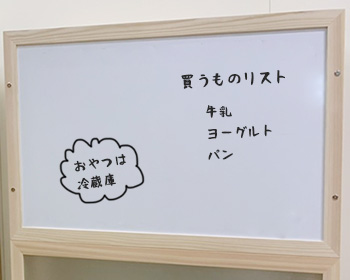 買うものリスト
牛乳
ヨーグルト
パン
おやつは
冷蔵庫